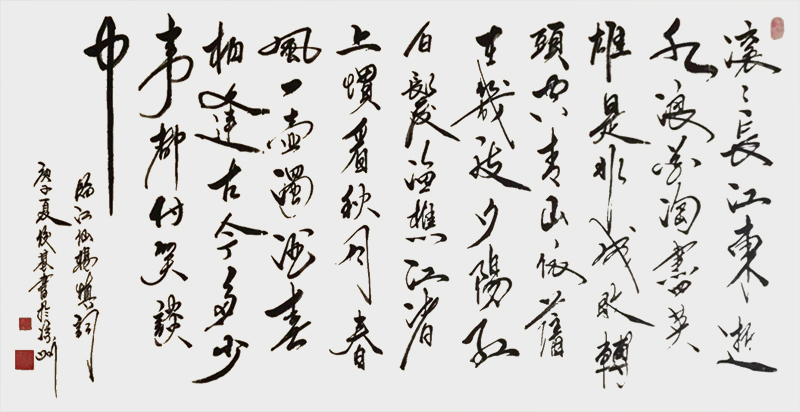 滚〻長江東逝
水浪花淘盡英
雄是非成敗轉
頭空青山依舊
在幾度夕陽紅
白髮漁樵江渚
上慣看秋月春
風一壺濁酒喜
相逢古今多少
事都付笑談
中
臨江仙楊慎詞
庚子夏書於徐州